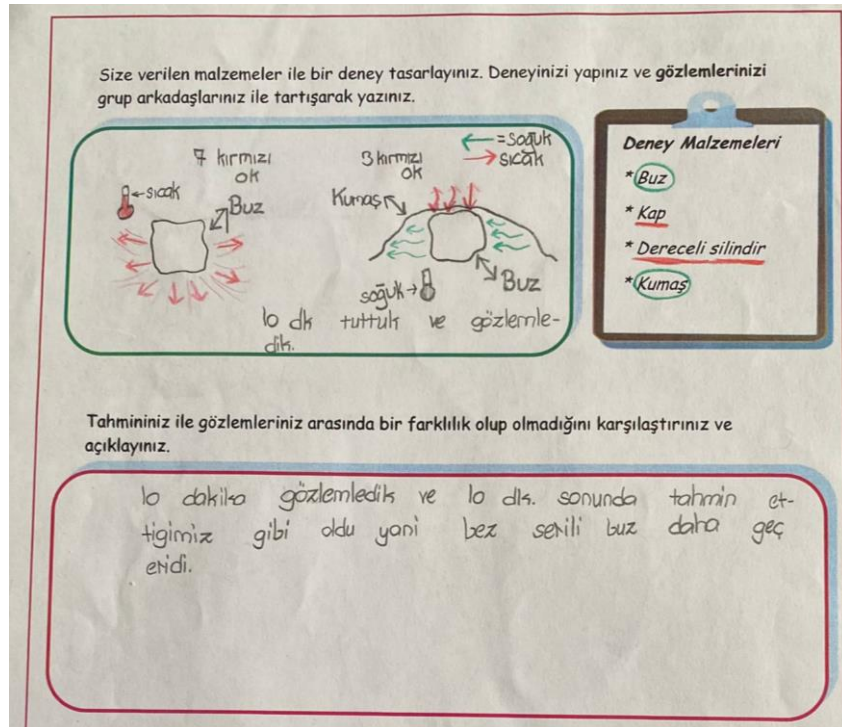 Size verilen malzemeler ile bir deney tasarlayınız. Deneyinizi yapınız ve gözlemlerinizi
grup arkadaşlarınız ile tartışarak yazınız.
7 kırmızı
ok
3 kırmızı
ok
=soğuk
sıcak
sıcak
Buz
Kumaş
soğuk
Buz
10 dk tuttuk ve gözlemle-
dik.
Deney Malzemeleri
* Buz
* Kap
* Dereceli silindir
* Kumaş
Tahmininiz ile gözlemleriniz arasında bir farklılık olup olmadığını karşılaştırınız ve
açıklayınız.
10 dakika gözlemledik ve 10 dk. sonunda tahmin et-
tigimiz gibi oldu yani bez serili buz daha geç
eridi.